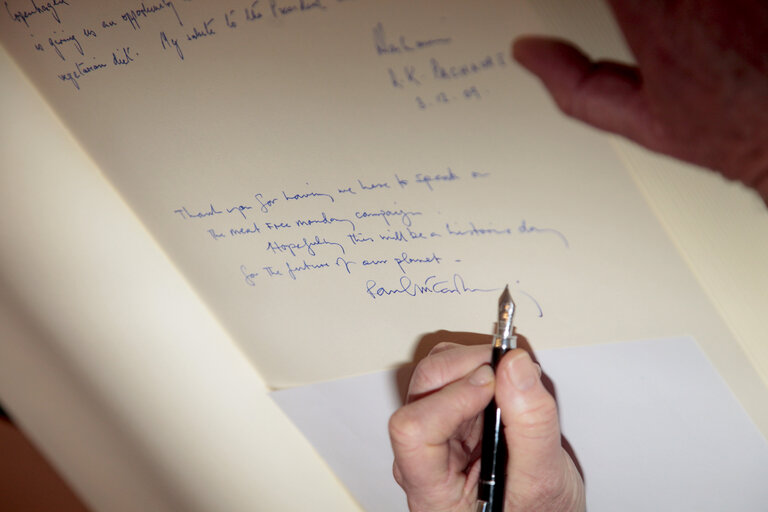 Copenhagen
is giving us an opportunity
vegetarian diet. My salute to the President
R.K. PACHAURI
3.12.09.
Thank you for having me here to speak on
the meat free monday campaign.
Hopefully this will be a historic day
for the future of our planet -
Paul McCartney